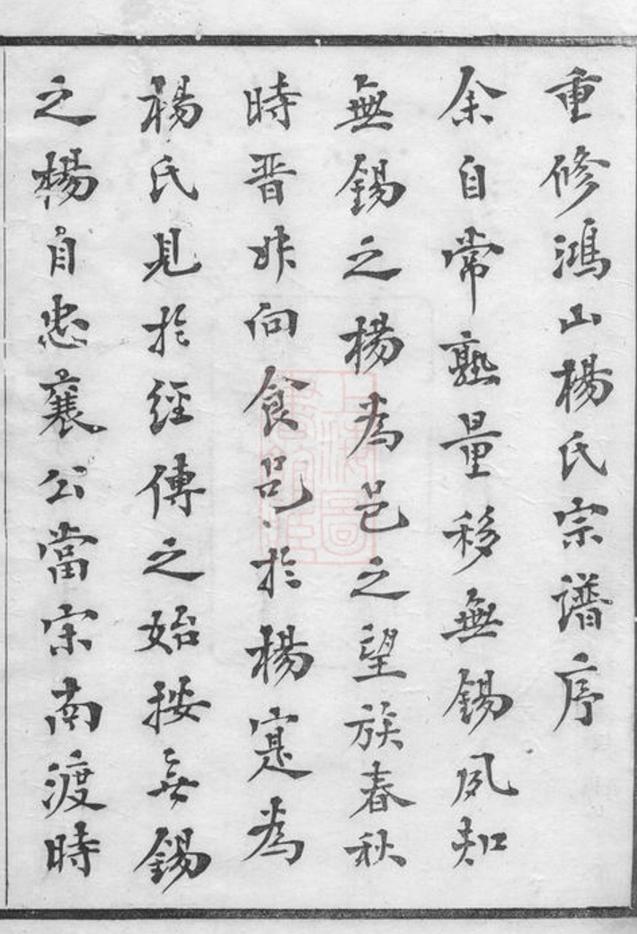 重修鴻山楊氏宗譜序
余自常熟量移無錫夙知
無錫之楊為邑之望族春秋
時晋叔向食邑於楊寔為
楊氏見於經傳之始按無錫
之楊自忠襄公當宋南渡時
上海圖